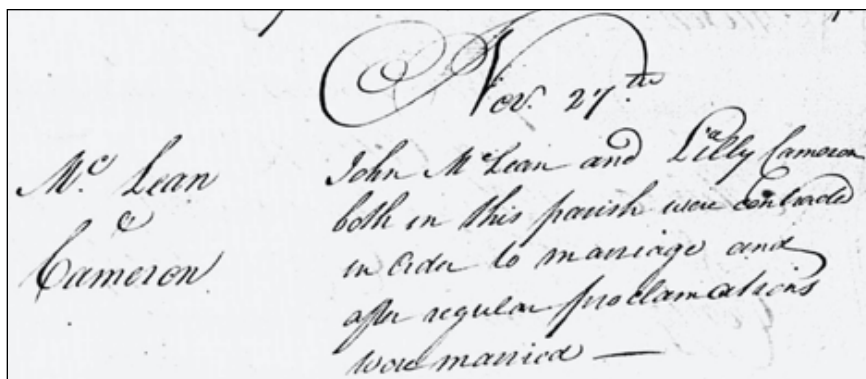 Nov. 27.th
Mc. Lean
&
Cameron
John McLean and Lilly Cameron
both in this parish were contracted
in order to marriage and
after regular proclamations
were married —